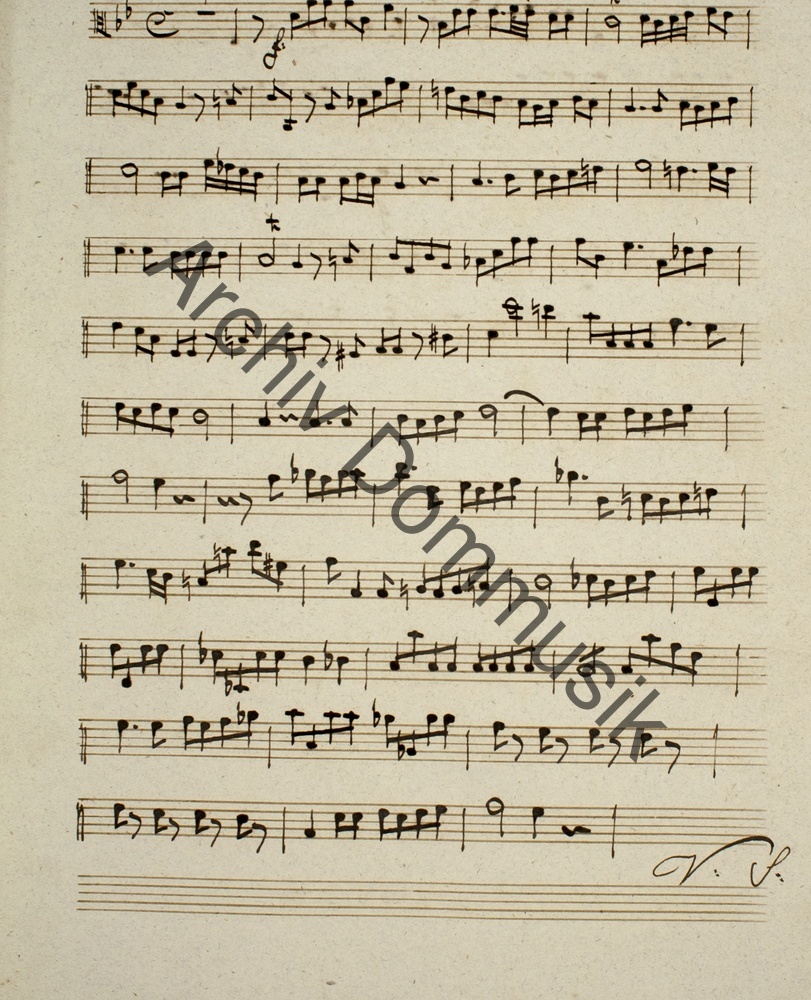 f:
Archiv Dommusik
V: S: